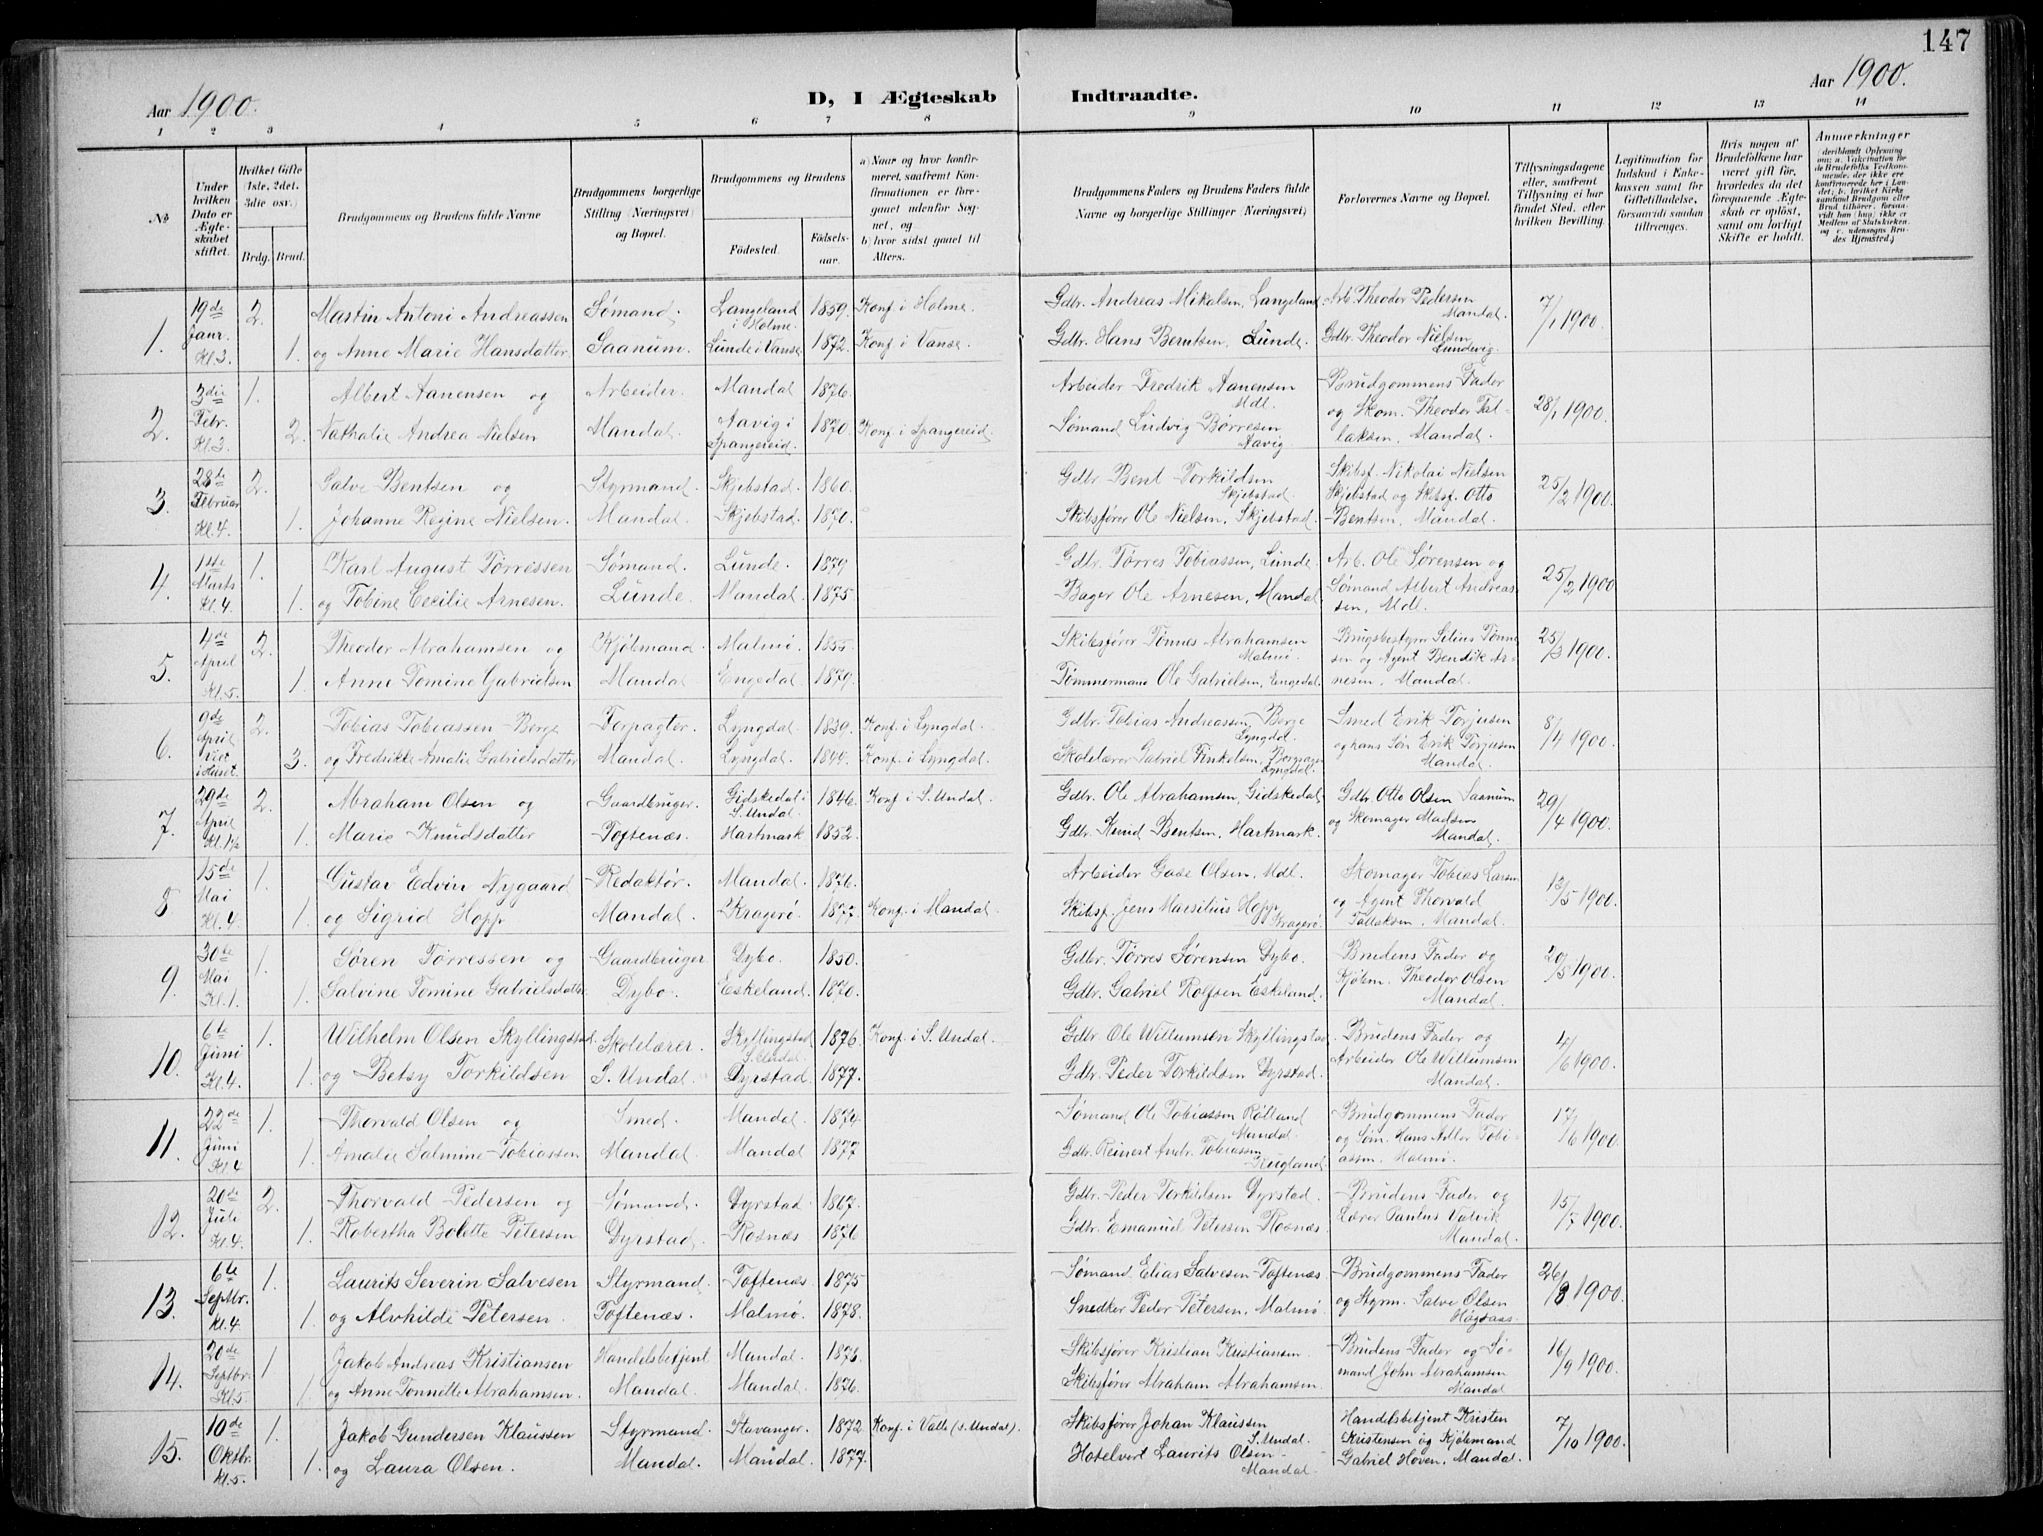 147
Aar 1900.
D, I Ægteskab Indtraadte.
Aar 1900.
1 2 3 4 5 6 7 8 9 10 11 12 13 14
No
Under hvilken Dato er Ægteskabet stiftet.
Hvilket Gifte (1ste, 2det, 3die osv.)
Brdg. Brud.
Brudgommens og Brudens fulde Navne
Brudgommens borgerlige Stilling (Næringsvei) og Bopæl.
Brudgommens og Brudens
Födested. Födselsaar.
a) Naar og hvor konfirmeret, saafremt Konfirmationen er foregaaet udenfor Sognet, og
b) hvor sidst gaaet til Alters.
Brudgommens Faders og Brudens Faders fulde Navne og borgerlige Stillinger (Næringsvei)
Forlovernes Navne og Bopæl.
Tillysningsdagene eller, saafremt Tillysning ei har fundet Sted, efter hvilken Bevilling.
Legitimation for Indskud i Enkekassen samt for Giftetilladelse, forsaavidt saadan tiltrænges.
Hvis nogen af Brudefolkene har været gift før, hvorledes da det foregaaende Ægteskab er oplöst, samt om lovligt Skifte er holdt.
Anmerkninger
1. 19de Janr. Kl. 3. 2. Martin Antoni Andreassen Sømand. Langeland i Holme. 1859. Konf. i Holme. Gdbr. Andreas Mikalsen, Langeland. Arb. Theodor Pedersen Mandal. 7/1 1900.
1. og Anne Marie Hansdatter Saanum. Lunde i Vanse 1872. Konf. i Vanse. Gdbr. Hans Berntsen, Lunde. Gdbr. Theodor Nielsen Lundevig.
2. 3die Febr. Kl. 3. 1. Albert Aanensen og Arbeider. Mandal 1876. Arbeider Fredrik Aanensen Mdl. Brudgommens Fader 28/1 1900.
2. Nathalie Andrea Nielsen Mandal. Aavig i Spangereid. 1870. Konf. i Spangereid. Sømand Ludvig Børresen Aavig. og Skom. Theodor Tallaksen, Mandal.
3. 28de Februar Kl. 4. 2. Salve Bentsen og Styrmand. Skjebstad. 1860. Gdbr Bent Torkildsen Skjebstad. Skibsf. Nikolai Nielsen 25/2 1900.
1. Johanne Regine Nielsen. Mandal. Skjebstad. 1870. Skibsfører Ole Nielsen, Skjebstad. Skjebstad og Skibsf. Otto Bentsen, Mandal.
4. 14de Marts Kl. 4. 1. Karl August Tørressen Sømand. Lunde. 1879 Gdbr. Tørres Tobiassen, Lunde. Arb. Ole Sørensen og 25/2 1900
1. og Tobine Cecilie Arnesen. Lunde. Mandal. 1875. Bager Ole Arnesen, Mandal. Sømand Albert Andreassen, Mdl.
5. 4de April Kl. 5. 2. Theodor Abrahamsen og Kjøbmand. Malmø. 1855. Skibsfører Tønnes Abrahamsen Malmø. 25/3 1900.
1. Anne Tomine Gabrielsen Mandal Engedal 1879. Tømmermand Ole Gabrielsen, Engedal. og Agent Bendik Arnesen, Mandal.
6. 9de April Kl. i Huset. 2. Tobias Tobiassen Berge Forpagter. Lyngdal. 1839. Konf. i Lyngdal. Gdbr. Tobias Andreassen Berge Lyngdal. Smed Erik Torjusen 8/4 1900.
3. og Fredrikke Amalie Gabrielsdatter Mandal. Lyngdal. 1844. Konf. i Lyngdal. Skolelærer Gabriel Lyngdal. og hans Søn Erik Torjusen Mandal.
7. 29de April 2. Abraham Olsen og Gaardbruger. Gidskedal i S. Undal. 1846. Konf. i S. Undal. Gdbr. Ole Abrahamsen, Gidskedal Gdbr. Otto Olsen Saanum 29/4 1900.
1. Marie Knudsdatter Toftenæs. Hartmark 1852. Gdbr. Knud Bentsen, Hartmark. og Skomager Madsen Mandal.
8 15de Mai Kl. 4. 1. Gustav Edvin Nygaard Redaktør. Mandal. 1876. Arbeider Olsen. Mdl. Skomager Tobias Larsen 13/5 1900.
1 og Sigrid Hopp Mandal. Kragerø. 1877. Konf. i Mandal. Skibsf. Jens Hopp Kragerø. og Agent Thorvald Tallaksen, Mandal.
9. 30te Mai Kl. 1. 1. Søren Tørressen og Gaardbruger Dybo. 1850. Gdbr. Tørres Sørensen Dybo. Brudens Fader og 20/5 1900.
1. Salvine Tomine Gabrielsdatter. Dybo. Eskeland. 1870. Gdbr. Gabriel Rolfsen Eskeland. Kjøbm. Theodor Olsen Mandal.
10. 6te Juni Kl. 4. 1. Wilhelm Olsen Skyllingstad. Skolelærer. Skyllingstad S. Undal. 1876. Konf. i S. Undal. Gdbr Ole Willumsen Skyllingstad. Brudens Fader og 4/6 1900.
1. og Betsy Torkildsen S. Undal. Dyrstad. 1877. Gdbr. Peder Torkildsen Dyrstad. Arbeider Ole Willumsen Mandal.
11. 22de Juni Kl. 4 1. Thorvald Olsen og Smed. Mandal. 1874. Sømand Ole Tobiassen Rølland Mandal. Brudgommens Fader 17/6 1900.
1. Amalie Salmine Tobiassen Mandal. Mandal 1877 Gdbr. Reinert Andr. Tobiassen og Søm. Hans Adler Tobiassen. Malmø.
12. 20de Juli Kl. 4. 2. Thorvald Pedersen og Sømand. Dyrstad. 1867. Gdbr. Peder Torkildsen Dyrstad. Brudens Fader og 15/7 1900.
1. Robertha Bolette Petersen Dyrstad. Rosnæs 1876 Gdbr. Emanuel Petersen Rosnæs. Lærer Paulus Valvik Mandal.
13. 6te Septbr. Kl. 4 1. Laurits Severin Salvesen Styrmand. Toftenæs. 1875 Sømand Elias Salvesen Toftenæs. Brudgommens Fader 26/8 1900.
1. og Alvhilde Petersen. Toftenæs. Malmø. 1878. Snedker Peder Petersen, Malmø. og Styrm. Salve Olsen
14. 20de Septbr. Kl. 5 1 Jakob Andreas Kristiansen Handelsbetjent Mandal. 1876. Skibsfører Kristian Kristiansen. Brudens Fader og Sø- 16/9 1900.
1. og Anne Tonnette Abrahamsen. Mandal. Mandal. 1876. Skibsfører Abraham Abrahamsen. mand John Abrahamsen Mandal
15. 10de Oktbr. Kl. 5. 1. Jakob Gundersen Klaussen Styrmand. Stavanger. 1872. Konf. i Valle (S. Undal). Skibsfører Johan Klaussen S. Undal. Handelsbetjent Kristen 7/10 1900.
1. og Laura Olsen. Mandal. Mandal. 1877. Hotelvert Laurits Olsen Mandal. Kristensen og Kjøbmand Gabriel Hoven, Mandal.